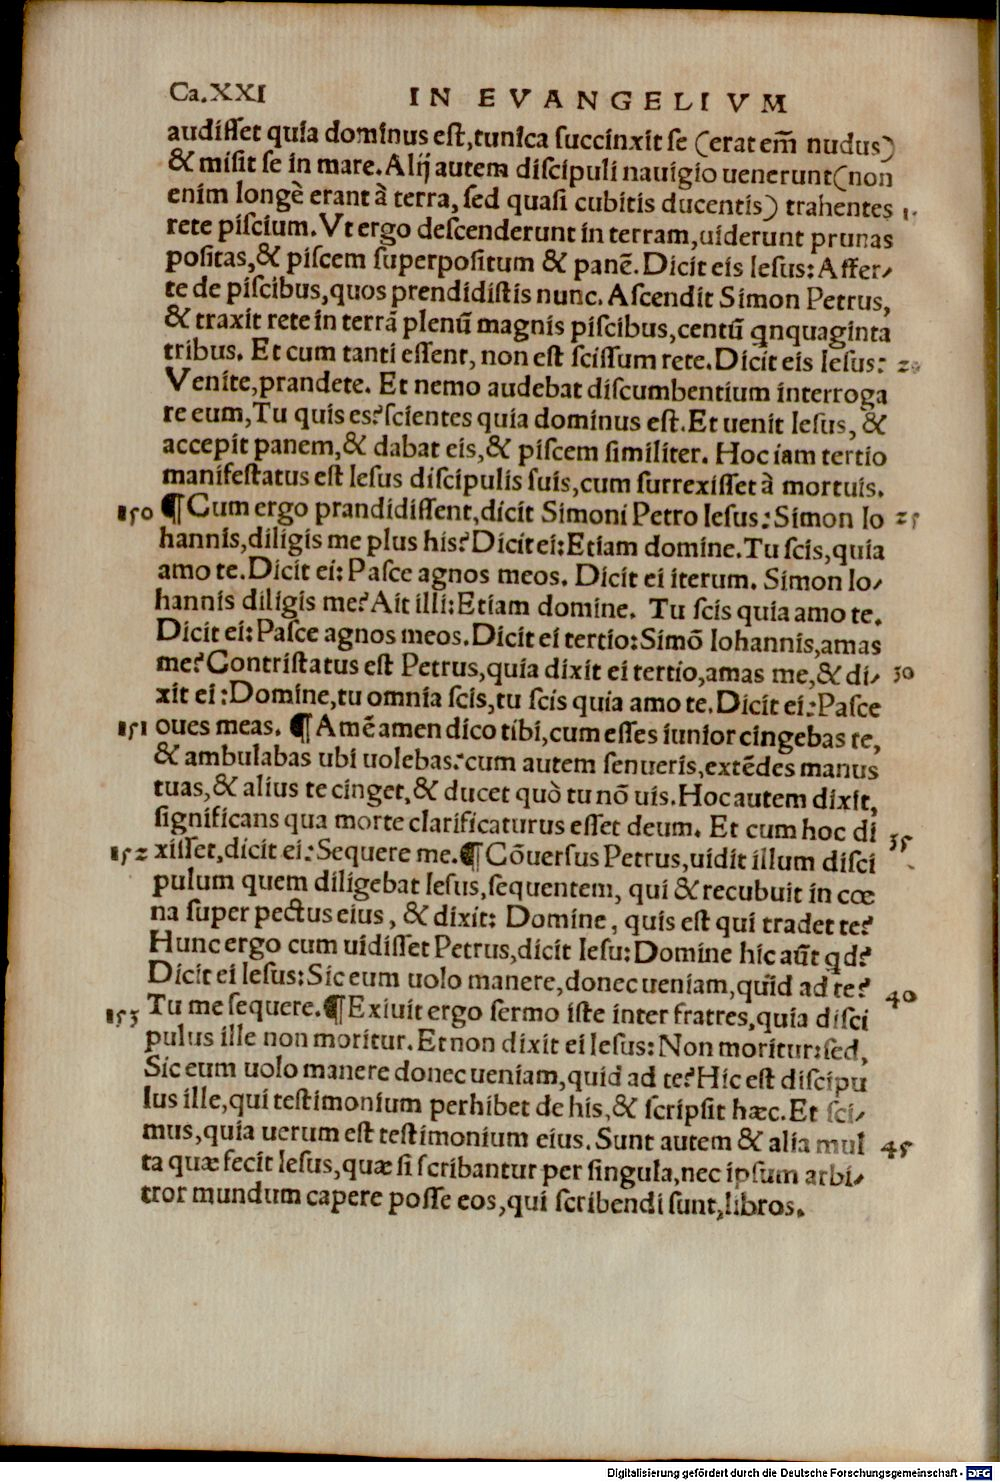 Ca.XXI IN EVANGELIVM
audiſſet quia dominus eſt,tunica ſuccinxit ſe (erat em̃ nudus)
& miſit ſe in mare.Alij autem diſcipuli nauigio uenerunt(non
enim longè erant à terra, ſed quaſi cubitis ducentis) trahentes
rete piſcium. Vt ergo deſcenderunt in terram,uiderunt prunas
poſitas,& piſcem ſuperpoſitum & panẽ. Dicit eis Ieſus: Affer/
te de piſcibus,quos prendidiſtis nunc. Aſcendit Simon Petrus,
& traxit rete in terrã plenũ magnis piſcibus,centũ qnquaginta
tribus. Et cum tanti eſſent, non eſt ſciſſum rete.Dicit eis Ieſus: 2
Venite,prandete. Et nemo audebat diſcumbentium interroga
re eum,Tu quis es?ſcientes quia dominus eſt.Et uenit Ieſus, &
accepit panem,& dabat eis,& piſcem ſimiliter. Hoc iam tertio
manifeſtatus eſt Ieſus diſcipulis ſuis,cum ſurrexiſſet à mortuis.
150 ¶ Cum ergo prandidiſſent,dicit Simoni Petro Ieſus: Simon Io 25
hannis,diligis me plus his? Dicit ei: Etiam domine. Tu ſcis,quia
amo te.Dicit ei: Paſce agnos meos. Dicit ei iterum. Simon Io/
hannis diligis me? Ait illi:Etiam domine. Tu ſcis quia amo te.
Dicit ei: Paſce agnos meos.Dicit ei tertio: Simõ Iohannis,amas
me? Contriſtatus eſt Petrus,quia dixit ei tertio,amas me,& di/ 30
xit ei: Domine,tu omnia ſcis,tu ſcis quia amo te.Dicit ei: Paſce
151 oues meas. ¶ Amẽ amen dico tibi,cum eſſes iunior cingebas te,
& ambulabas ubi uolebas: cum autem ſenueris,extẽdes manus
tuas,& alius te cinget,& ducet quò tu nõ uis. Hoc autem dixit,
ſignificans qua morte clarificaturus eſſet deum. Et cum hoc di 35
152 xiſſet,dicit ei: Sequere me.¶ Cõuerſus Petrus,uidit illum diſci
pulum quem diligebat Ieſus,ſequentem, qui & recubuit in cœ
na ſuper pectus eius, & dixit: Domine, quis eſt qui tradet te?
Hunc ergo cum uidiſſet Petrus,dicit Ieſu: Domine hic aũt qd?
Dicit ei Ieſus: Sic eum uolo manere,donec ueniam,quid ad te? 40
153 Tu me ſequere.¶ Exiuit ergo ſermo iſte inter fratres,quia diſci
pulus ille non moritur. Et non dixit ei Ieſus: Non moritur: ſed,
Sic eum uolo manere donec ueniam,quid ad te? Hic eſt diſcipu
lus ille,qui teſtimonium perhibet de his,& ſcripſit hæc.Et ſci/
mus,quia uerum eſt teſtimonium eius. Sunt autem & alia mul 45
ta quæ fecit Ieſus,quæ ſi ſcribantur per ſingula,nec ipſum arbi/
tror mundum capere poſſe eos,qui ſcribendi ſunt,libros.
Digitalisierung gefördert durch die Deutsche Forschungsgemeinschaft - DFG